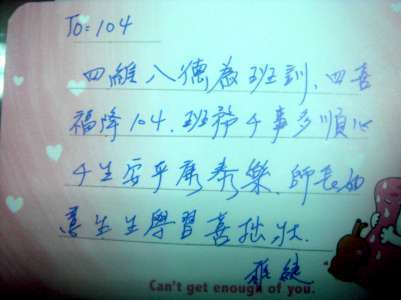 To: 104
四維八德為班訓、四喜
福降104、班務千事多順心
千生安平康泰樂、師長如
意生生學習善
Can't get enough of you.